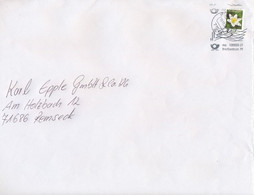 Karl Epple GmbH & Co KG
Am Holzbach 12
71686 Remseck